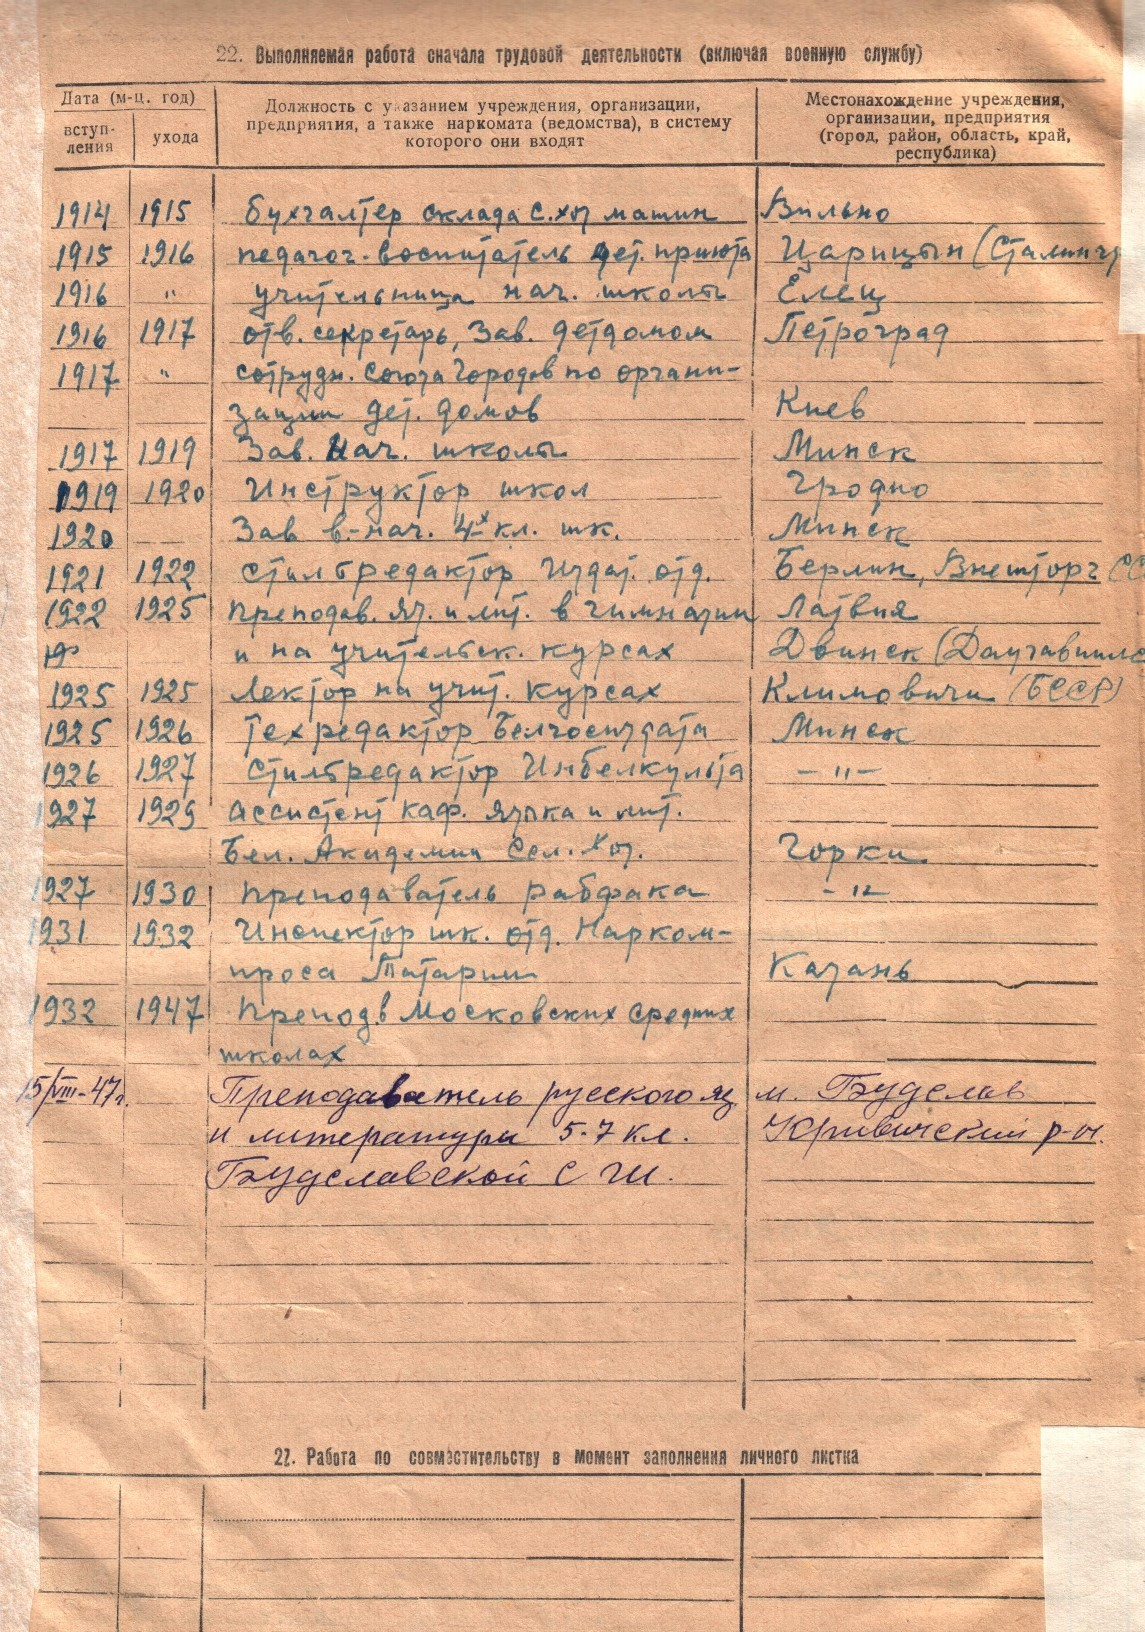 22. Выполняемая работа сначала трудовой деятельности (включая военную службу)
Дата (м-ц. год)
вступ-
ления
ухода
Должность с указанием учреждения, организации,
предприятия, а также наркомата (ведомства), в систему
которого они входят
Местонахождение учреждения,
организации, предприятия
(город, район, область, край,
республика)
1914 1915 бухгалтер склада с.хоз машин Вильно
1915 1916 педагог-воспитатель дет. приюта Царицын (Сталингр
1916 " учительница нач. школы Елец
1916 1917 отв. секретарь, Зав. детдомом Петроград
1917 " сотрудн. Союза Городов по органи-
зации дет. домов Киев
1917 1919 Зав. Нач. школы Минск
1919 1920 Инструктор школ Гродно
1920 — Зав в.-нач. 4-х кл. шк. Минск
1921 1922 Стильредактор Издат. отд. Берлин, Внешторг СС
1922 1925 преподав. яз. и лит. в гимназии Латвия
и на учительск. курсах Двинск (Даугавпилс
1925 1925 Лектор на учит. курсах Климовичи (БССР)
1925 1926 Техредактор Белгосиздата Минск
1926 1927 Стильредактор Инбелкульта — " —
1927 1929 Ассистент каф. языка и лит.
Бел. Академии Сел. Хоз. Горки
1927 1930 преподаватель рабфака - " -
1931 1932 Инспектор шк. отд. Нарком-
проса Татарии Казань
1932 1947 Препод. в Московских средних
школах
15/VIII-47г. Преподаватель русского яз м. Будслав
и литературы 5-7 кл. Кривичский р-н.
Будславской СШ.
27. Работа по совместительству в момент заполнения личного листка